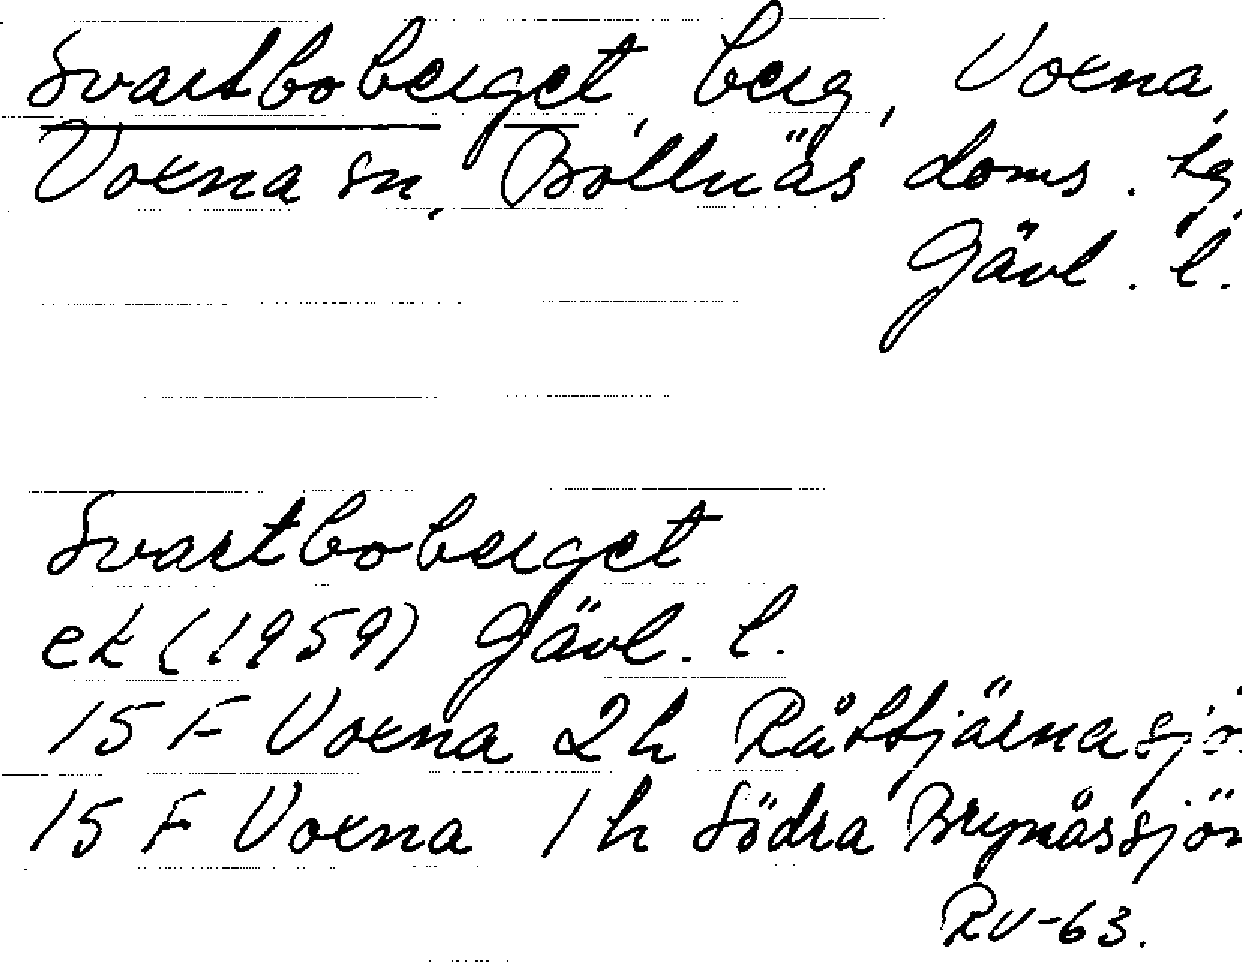 Svartboberget, berg, Voxna,
Voxna sn, Bollnäs doms. tg,
Gävl. l.
Svartboberget
ek (1959) Gävl. l.
15 F Voxna 2h Råttjärnasjö
15 F Voxna 1h Södra Brynåssjön
RV-63.